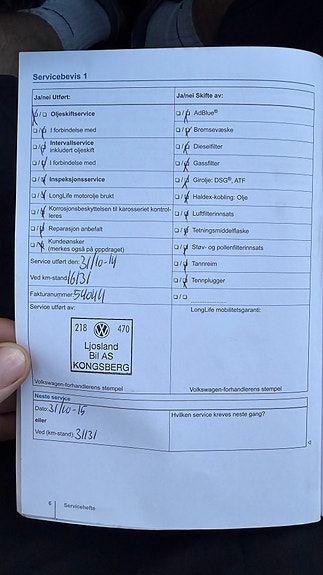 Servicebevis 1
Ja/nei Utført:
Oljeskiftservice
I forbindelse med
Intervallservice
inkludert oljeskift
I forbindelse med
Inspeksjonsservice
LongLife motorolje brukt
Korrosjonsbeskyttelsen til karosseriet kontrol-
leres
Reparasjon anbefalt
Kundeønsker
(merkes også på oppdraget)
Service utført den: 31/10-14
Ved km-stand: 16131
Fakturanummer: 54044
Ja/nei Skifte av:
AdBlue®
Bremsevæske
Dieselfilter
Gassfilter
Girolje: DSG®, ATF
Haldex-kobling: Olje
Luftfilterinnsats
Tetningsmiddelflaske
Støv- og pollenfilterinnsats
Tannreim
Tennplugger
Service utført av:
218 VW 470
Ljosland
Bil AS
KONGSBERG
Volkswagen-forhandlerens stempel
LongLife mobilitetsgaranti:
Volkswagen-forhandlerens stempel
Neste service
Dato: 31/10-15
eller
Ved (km-stand): 31131
Hvilken service kreves neste gang?
6 Servicehefte